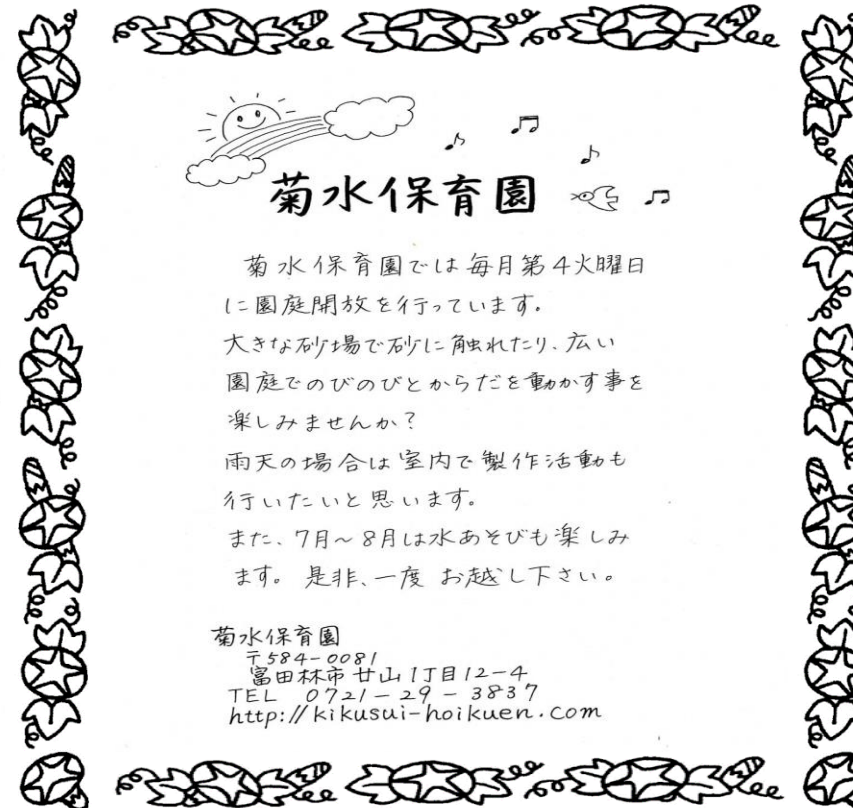 菊水保育園
菊水保育園では毎月第4火曜日
に園庭開放を行っています。
大きな砂場で砂に触れたり、広い
園庭でのびのびとからだを動かす事を
楽しみませんか?
雨天の場合は室内で製作活動も
行いたいと思います。
また、7月~8月は水あそびも楽しみ
ます。是非、一度 お越し下さい。
菊水保育園
〒584-0081
富田林市廿山1丁目12-4
TEL 0721-29-3837
http://kikusui-hoikuen.com